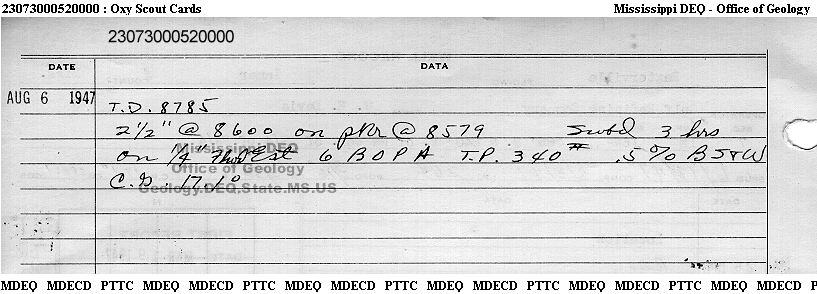 23073000520000 : Oxy Scout Cards Mississippi DEQ - Office of Geology
23073000520000
DATE DATA
AUG 6 1947 T.D. 8785
2 1/2" @ 8600 on pkr @ 8579 Swbd 3 hrs
on 1/4" Est 6 B O P H T.P. 340 # .5% BS&W
Mississippi DEQ
Office of Geology
C.G. 17.1°
Geology.DEQ.State.MS.US
MDEQ MDECD PTTC MDEQ MDECD PTTC MDEQ MDECD PTTC MDEQ MDECD PTTC MDEQ MDECD PTTC MDEQ MDECD P